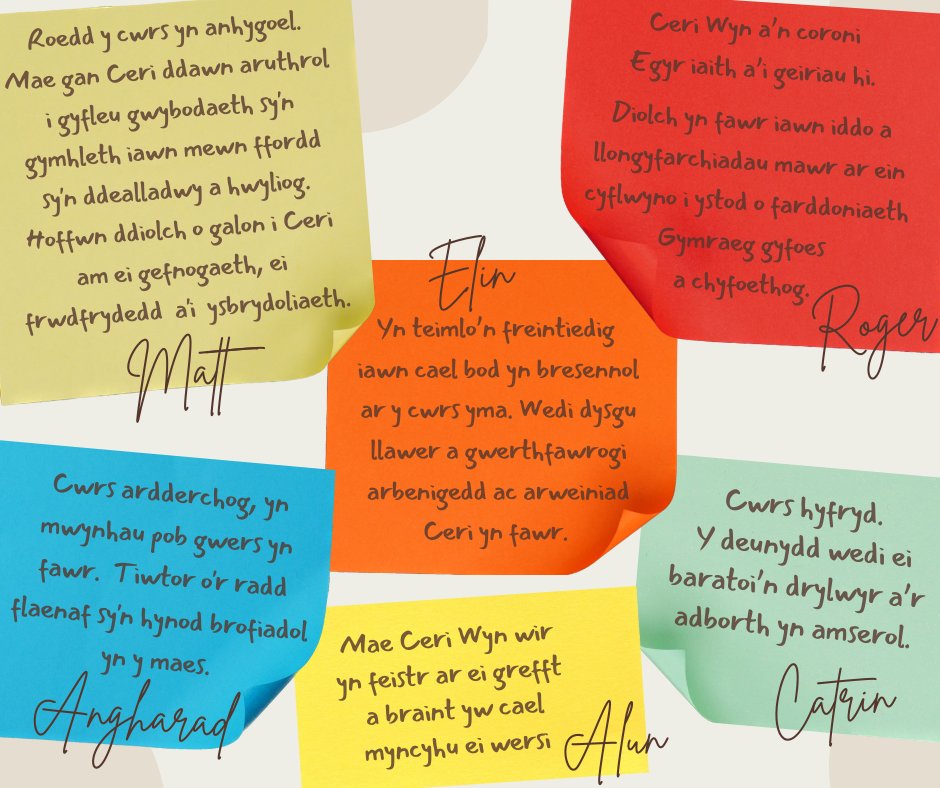 Roedd y cwrs yn anhygoel.
Mae gan Ceri ddawn aruthrol
i gyfleu gwybodaeth sy'n
gymhleth iawn mewn ffordd
sy'n ddealladwy a hwyliog.
Hoffwn ddiolch o galon i Ceri
am ei gefnogaeth, ei
frwdfrydedd a'i ysbrydoliaeth.
Matt
Ceri Wyn a'n coroni
Egyr iaith a'i geiriau hi.
Diolch yn fawr iawn iddo a
llongyfarchiadau mawr ar ein
cyflwyno i ystod o farddoniaeth
Gymraeg gyfoes
a chyfoethog.
Roger
Elin
Yn teimlo'n freintiedig
iawn cael bod yn bresennol
ar y cwrs yma. Wedi dysgu
llawer a gwerthfawrogi
arbenigedd ac arweiniad
Ceri yn fawr.
Cwrs ardderchog, yn
mwynhau pob gwers yn
fawr. Tiwtor o'r radd
flaenaf sy'n hynod brofiadol
yn y maes.
Angharad
Mae Ceri Wyn wir
yn feistr ar ei grefft
a braint yw cael
myncyhu ei wersi
Alun
Cwrs hyfryd.
Y deunydd wedi ei
baratoi'n drylwyr a'r
adborth yn amserol.
Catrin